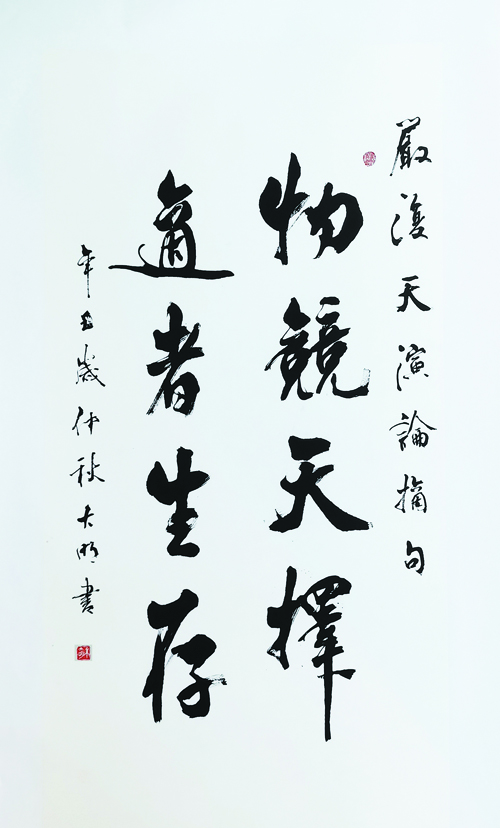 嚴復天演論摘句
物競天擇
適者生存
辛丑歲仲秋大明書